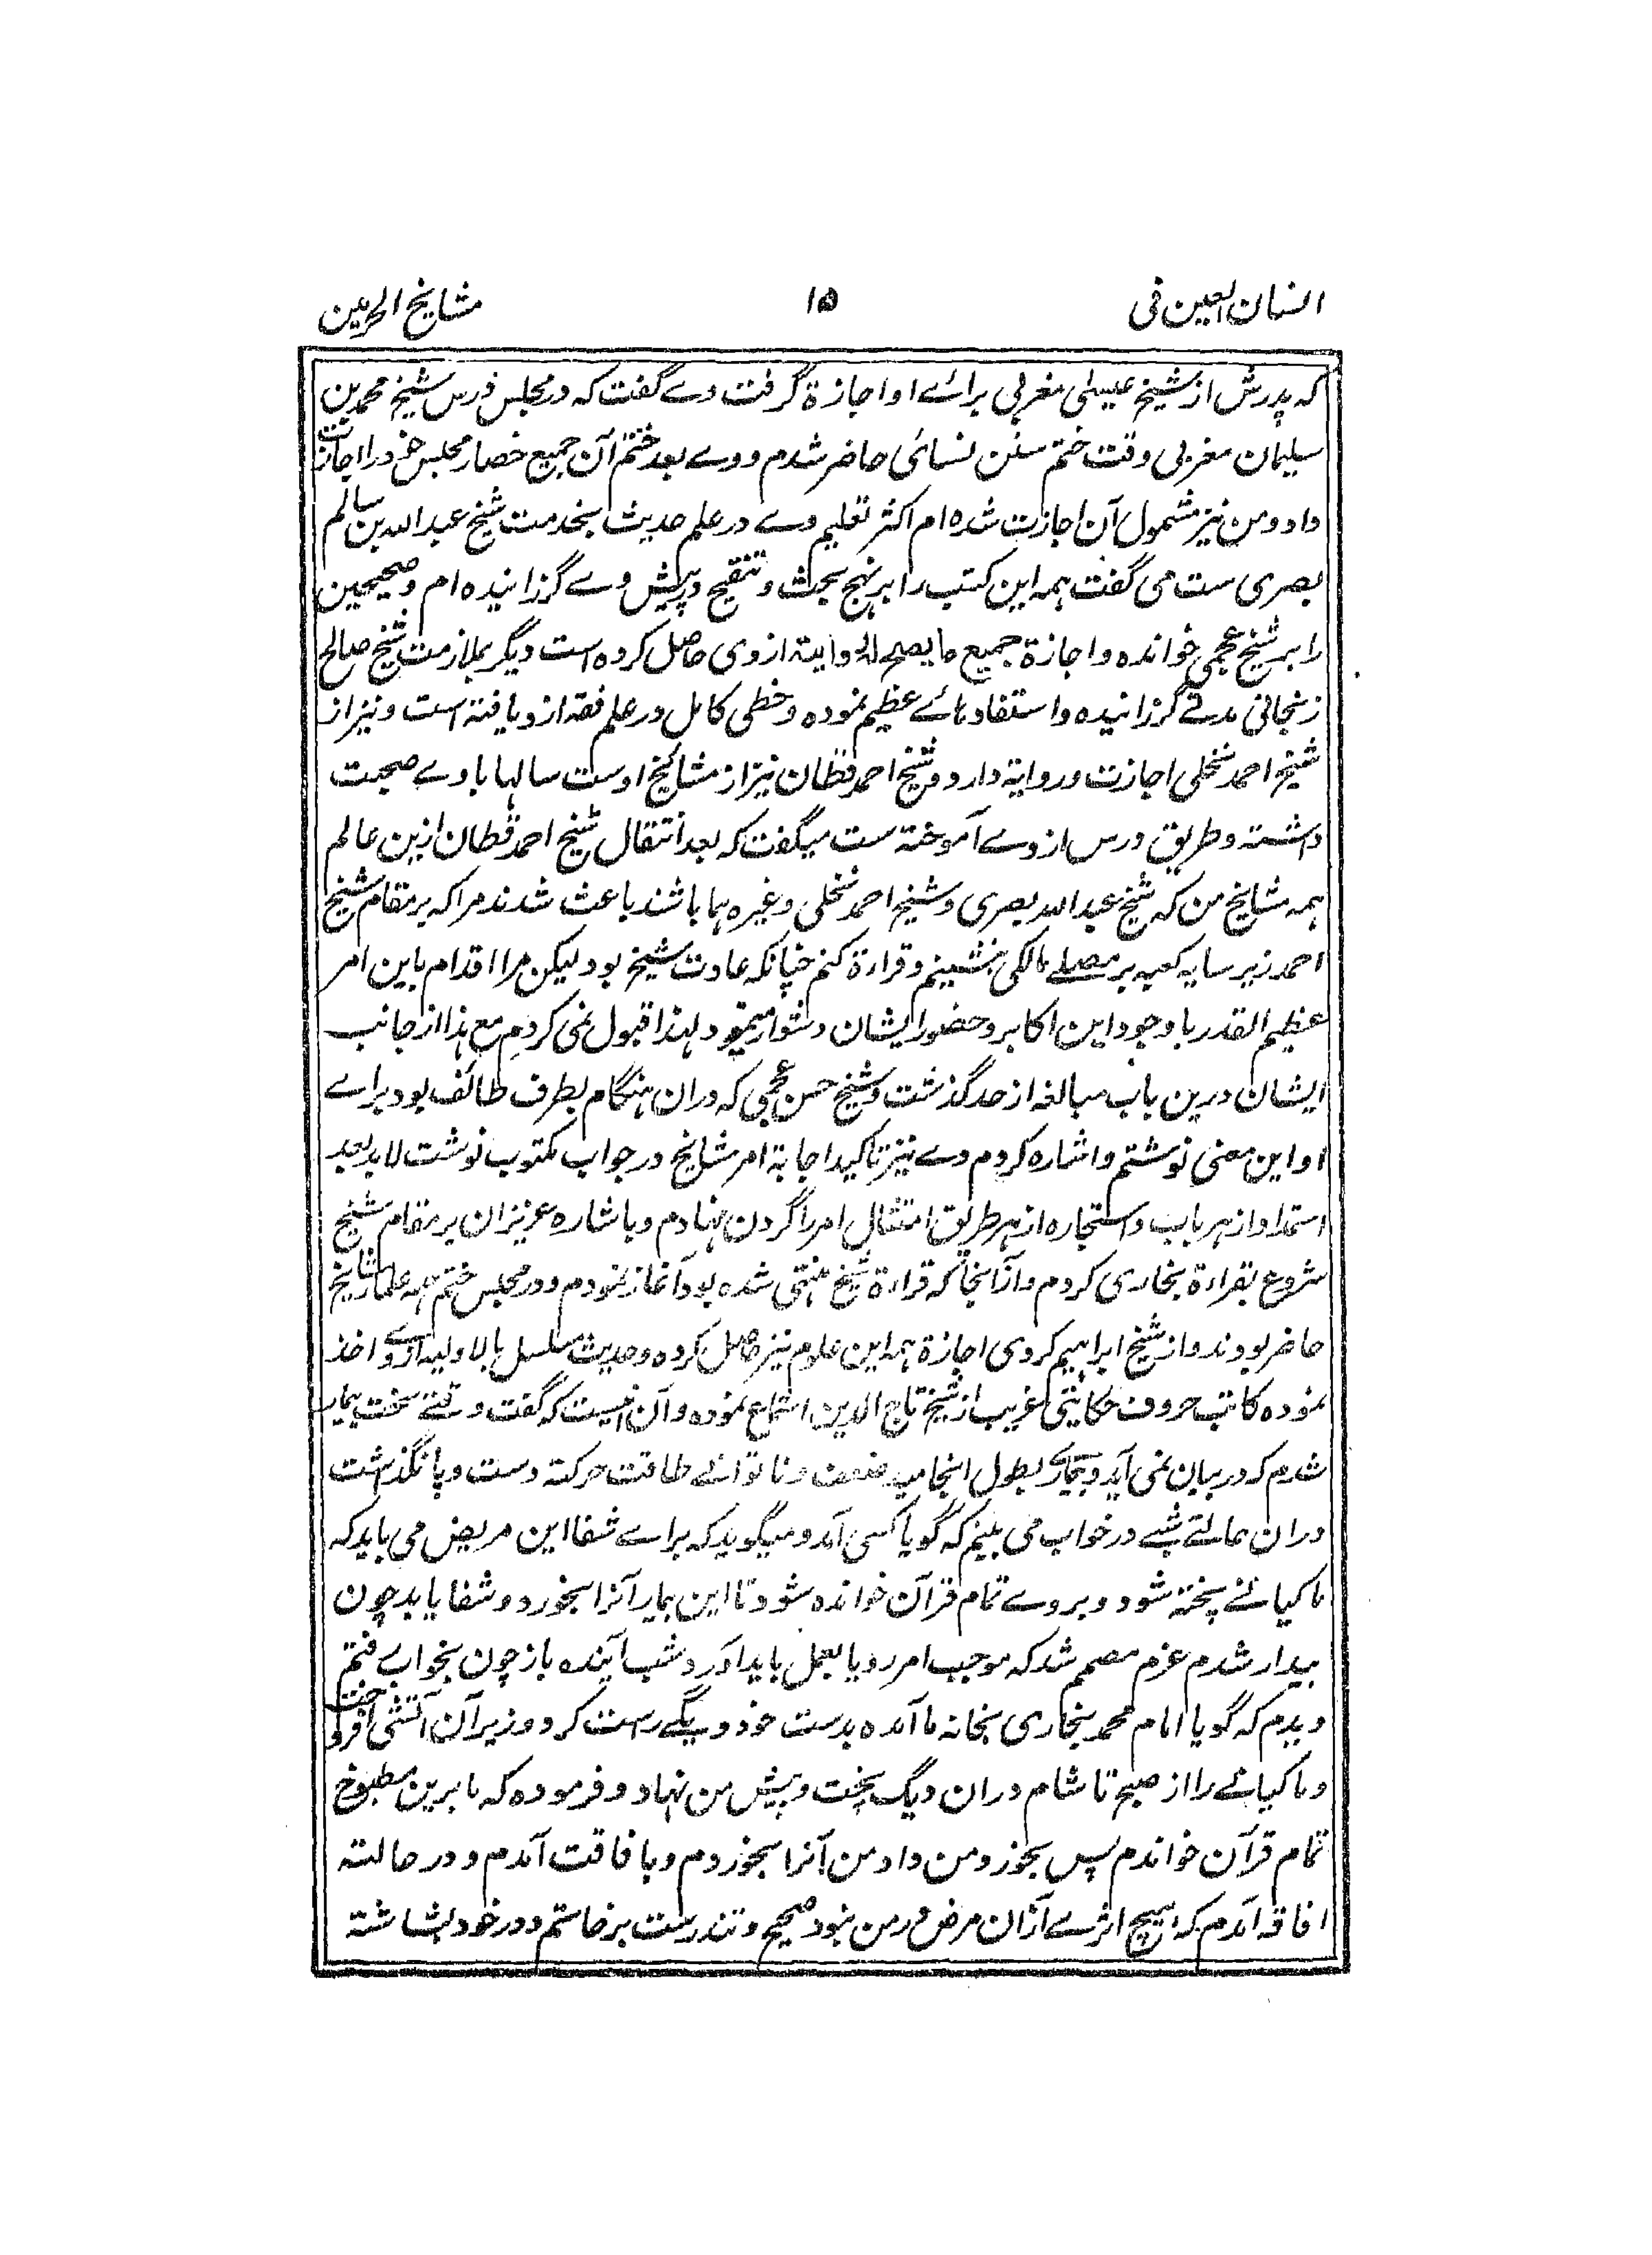 انسان العین فی ۱۵ مشایخ الحرمین
که پدرش از شیخ عیسی مغربی برائے او اجازة گرفت وے گفت که در مجلس درس شیخ محمد بن
سلیمان مغربی وقت ختم سنن نسائی حاضر شدم و وے بعد ختم آن جمیع حضار مجلس خود را اجازت
داد و من نیز مشمول آن اجازت شده ام اکثر تعلیم وے در علم حدیث بخدمت شیخ عبد الله بن سالم
بصری ست می گفت همه این کتب را بر نهج بحث و تنقیح در پیش وے گزرانیده ام و صحیحین
را بر شیخ عجمی خوانده و اجازة جمیع ما یصح له الروایة از وی حاصل کرده است دیگر بملازمت شیخ صالح
زنجانی مدتے گزرانیده و استفادهائے عظیم نموده و خطی کامل در علم فقه ازو یافته است و نیز از
شیخ احمد نخلی اجازت و روایة دارد و شیخ احمد قطان نیز از مشایخ اوست سالها با وے صحبت
داشته و طریق درس از وے آموخته ست میگفت که بعد انتقال شیخ احمد قطان ازین عالم
همه مشایخ من که شیخ عبد الله بصری و شیخ احمد نخلی و غیره هما باشند باعث شدند مرا که بر مقام شیخ
احمد زیر سایه کعبه بر مصلے مالکی بنشینم و قراءة کنم چنانکه عادت شیخ بود لیکن مرا اقدام باین امر
عظیم القدر با وجود این اکابر و حضور ایشان دشوار مینمود لهذا قبول نمی کردم مع هذا از جانب
ایشان درین باب مبالغه از حد گذشت و شیخ حسن عجمی که دران هنگام بطرف طائف بود برائے
او این معنی نوشتم و اشاره کردم وے نیز تاکید اجابة امر مشایخ در جواب مکتوب نوشت لابد بعد
استمداد از هر باب و استجاره از هر طریق امتثال امر را گردن نهادم و باشاره عزیزان بر مقام شیخ
شروع بقراءة بخاری کردم و از آنجا که قراءة شیخ منتهی شده بود آغاز نمودم و در مجلس ختم همه علما و مشایخ
حاضر بودند و از شیخ ابراهیم کردی اجازة همه این علوم نیز حاصل کرده و حدیث مسلسل بالاولیه از وے اخذ
نموده کاتب حروف حکایتی غریب از شیخ تاج الدین استماع نموده و آن اینست که گفت وقتے سخت بیمار
شدم که در بیان نمی آید و بیماری بطول انجامید ضعف و ناتوانئے طاقت حرکة دست و پا نگذاشت
دران حالتے شبے در خواب می بینم که گویا کسی آمد و میگوید که برائے شفا این مریض می باید که
ماکیانے پخته شود و بروے تمام قرآن خوانده شود تا این بیمار آنرا بخورد و شفا یابد چون
بیدار شدم عزم مصمم شد که موجب امر رویا بعمل باید آورد شب آینده باز چون بخواب رفتم
دیدم که گویا امام محمد بخاری بخانه ما آمده بدست خود دیگے راست کرد و زیر آن آتشی افروخت
و ماکیانے را از صبح تا شام دران دیگ پخت و پیش من نهاد و فرموده که ما برین مطبوخ
تمام قرآن خواندم پس بخور و من داد من آنرا بخوردم و بافاقت آمدم و در حالته
افاقه آمدم که هیچ اثرے ازان مرض در من نبود صحیح و تندرست برخاستم و در خود بشاشته